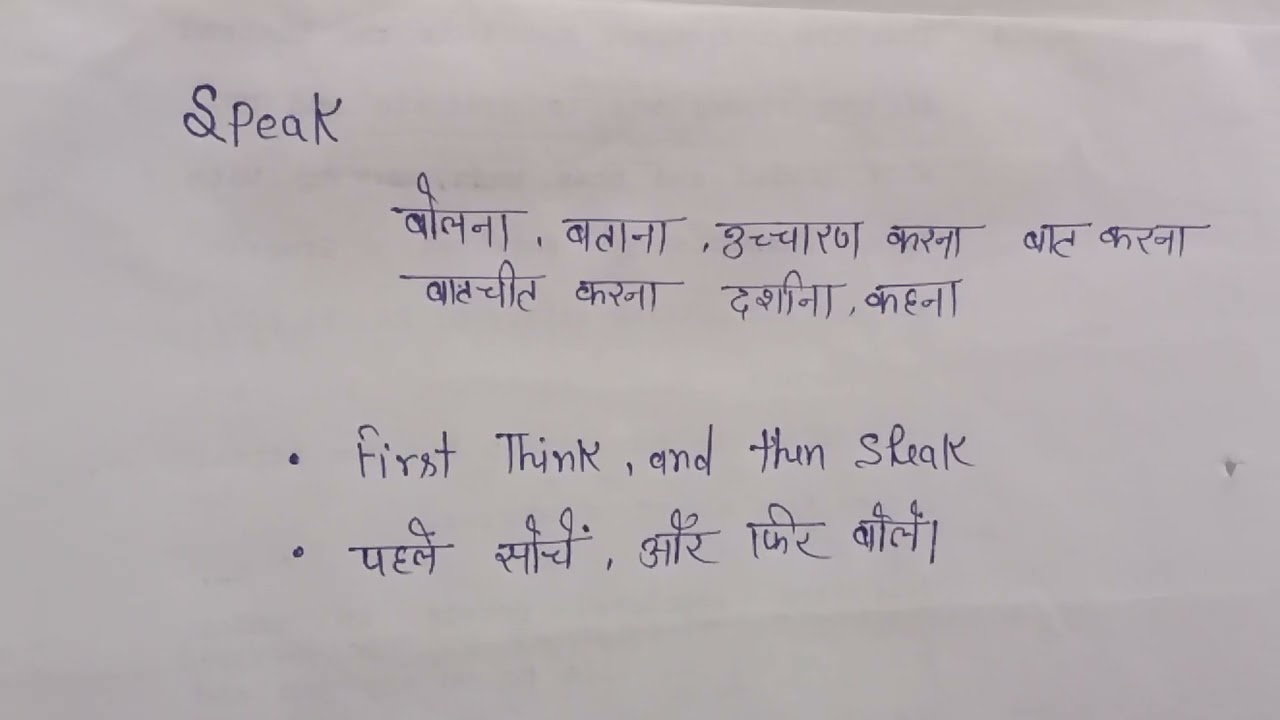 Speak
बोलना, बताना, उच्चारण करना बात करना
बातचीत करना दर्शाना, कहना
• First Think, and then Speak
• पहले सोचें, और फिर बोलें।